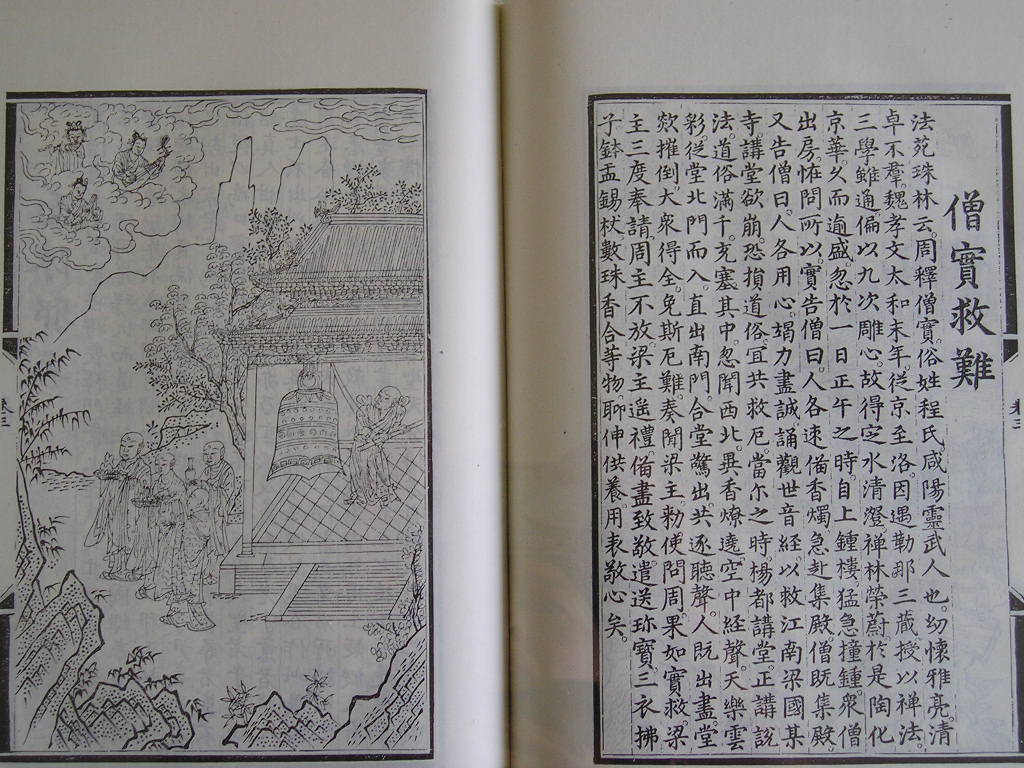 僧實救難
法苑珠林云。周釋僧實。俗姓程氏。咸陽靈武人也。幼懷雅亮。清
卓不羣。魏孝文太和末年。從京至洛。因遇勒那三藏。授以禅法。
三學雖通。偏以九次雕心。故得定水清澄。禅林榮蔚。於是陶化
京華。久而逾盛。忽於一日正午之時。自上鍾樓。猛急撞鍾。衆僧
出房。恠問所以。實告僧曰。人各速俻香燭。急赴集殿。僧既集殿。
又告僧曰。人各用心。竭力盡誠。誦觀世音經。以救江南梁國某
寺。講堂欲崩。恐損道俗。宜共救厄。當尔之時。楊都講堂。正講說
法。道俗滿千。充塞其中。忽聞西北。異香燎遶。空中經聲。天樂雲
彩。從堂北門而入。直出南門。合堂驚出。共逐聽聲。人既出盡。堂
欻摧倒。大衆得全。免斯厄難。奏聞梁主。勑使問周。果如實救。梁
主三度奉請。周主不放。梁主遥禮。俻盡致敬。遣送珎寶。三衣拂
子。鉢盂錫杖。數珠香合等物。聊伸供養。用表敬心矣。
卷三